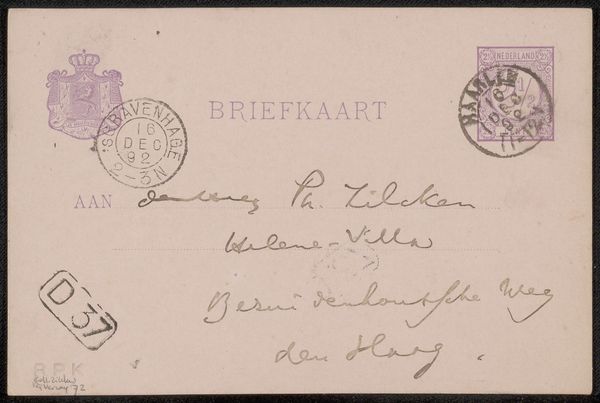 NEDERLAND
BRIEFKAART
HAARLEM
16 DEC
11-12V
'SGRAVENHAGE
16
DEC
92
2-3N
AAN
den heer Ph. Zilcken
Helene-Villa
Bezuidenhoutsche Weg
den Haag.
D 37
R.P.K